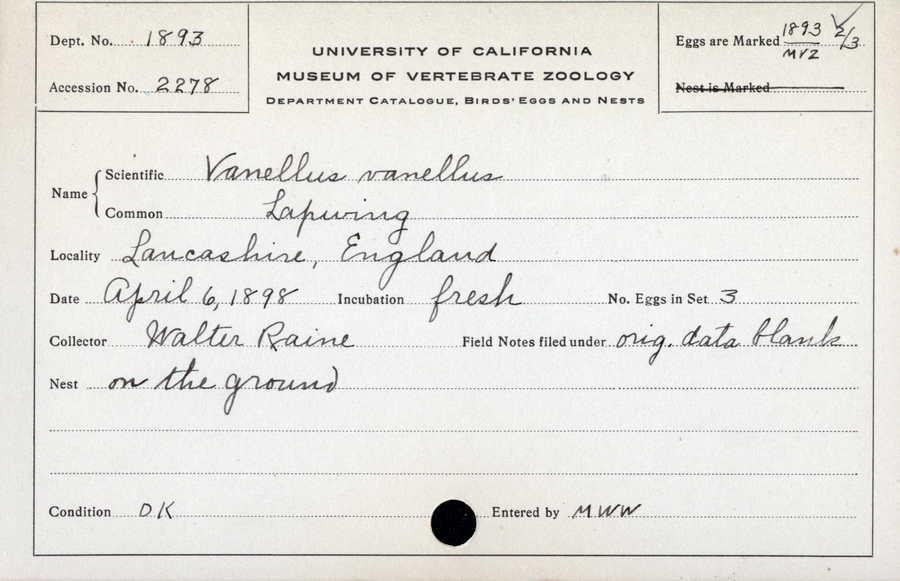 Dept. No. 1893
Accession No. 2278
UNIVERSITY OF CALIFORNIA
MUSEUM OF VERTEBRATE ZOOLOGY
DEPARTMENT CATALOGUE, BIRDS' EGGS AND NESTS
Eggs are Marked 1893 2/3
MVZ
Nest is Marked
Name
Scientific Vanellus vanellus
Common Lapwing
Locality Lancashire, England
Date April 6, 1898 Incubation fresh No. Eggs in Set 3
Collector Walter Raine Field Notes filed under orig. data blank
Nest on the ground
Condition OK Entered by MWW